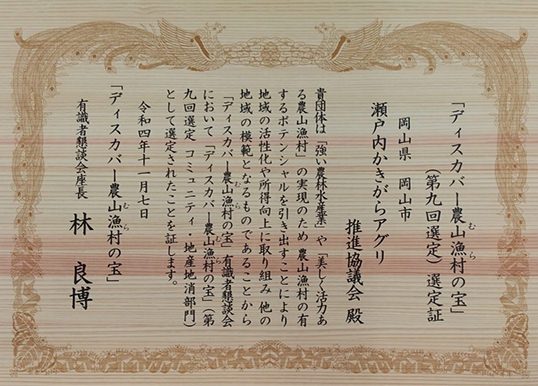 「ディスカバー農山漁村の宝」
（第九回選定）選定証
岡山県　岡山市
瀬戸内かきがらアグリ
推進協議会 殿
貴団体は「強い農林水産業」や「美しく活力あ
る農山漁村」の実現のため 農山漁村の有
するポテンシャルを引き出すことにより
地域の活性化や所得向上に取り組み 他の
地域の模範となるものであることから
「ディスカバー農山漁村の宝」有識者懇談会
において「ディスカバー農山漁村の宝」（第
九回選定 コミュニティ・地産地消部門）
として選定されたことを証します。
令和四年十一月七日
「ディスカバー農山漁村の宝」
有識者懇談会座長　林　良博